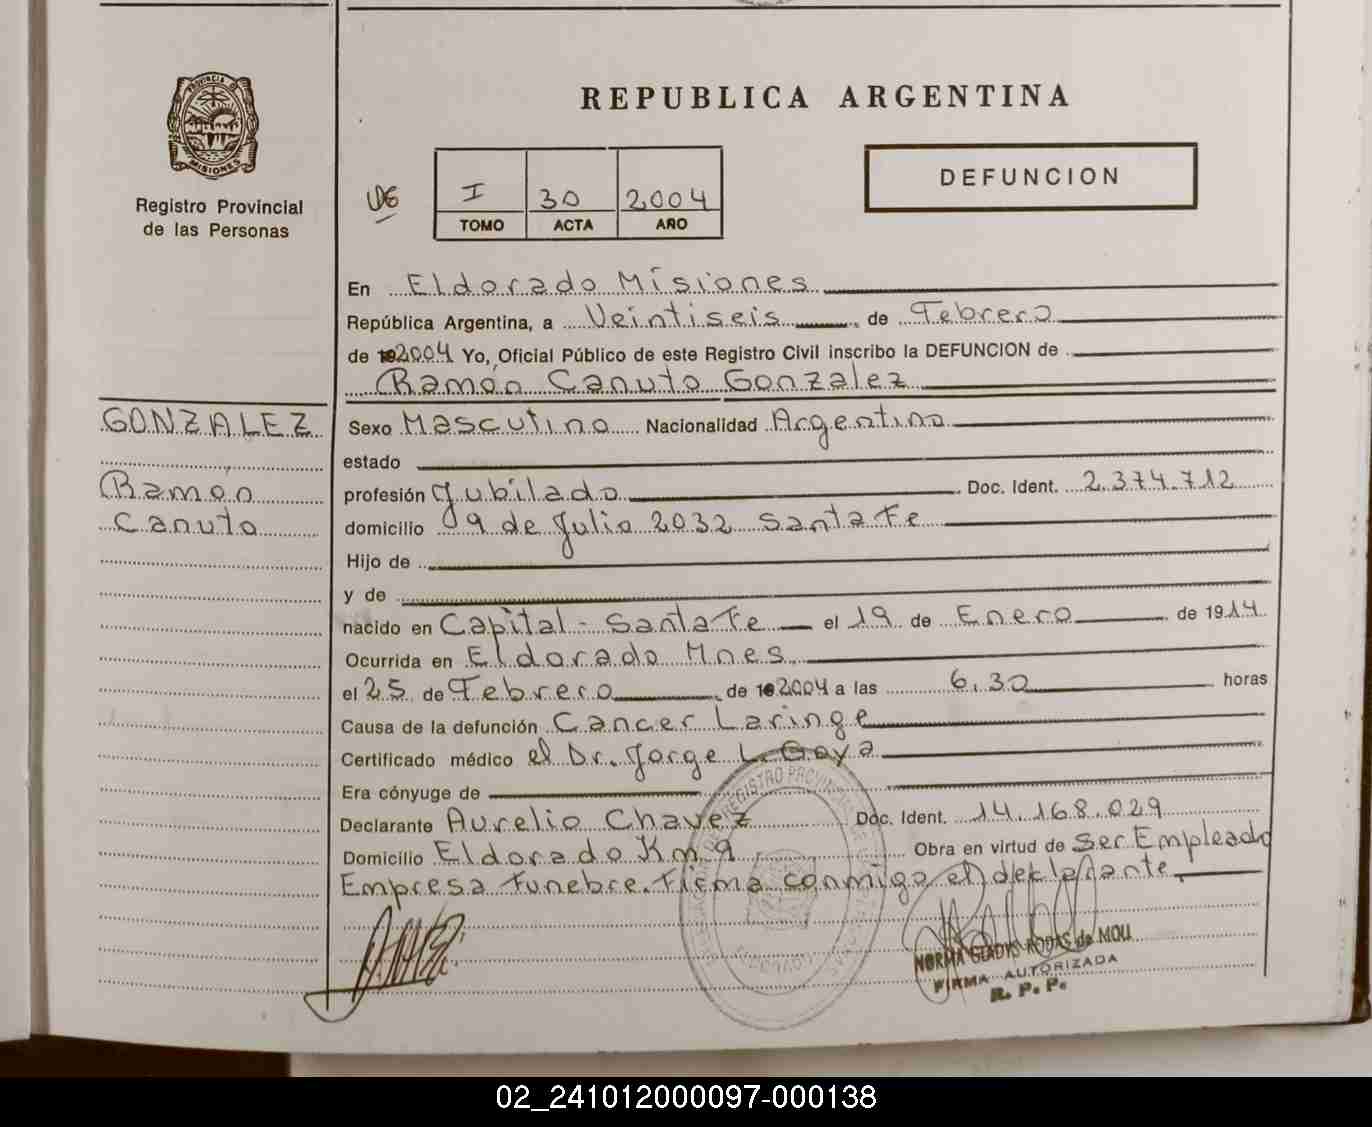 REPUBLICA ARGENTINA
PROVINCIA DE
MISIONES
Registro Provincial
de las Personas
I 30 2004
TOMO ACTA AÑO
DEFUNCION
En Eldorado Misiones
República Argentina, a Veintiseis de Febrero
de 2004 Yo, Oficial Público de este Registro Civil inscribo la DEFUNCION de
Ramón Canuto Gonzalez
GONZALEZ
Ramón
Canuto
Sexo Masculino Nacionalidad Argentino
estado
profesión Jubilado Doc. Ident. 2.374.712
domicilio 9 de Julio 2032 Santa Fe
Hijo de
y de
nacido en Capital - Santa Fe el 19 de Enero de 1914
Ocurrida en Eldorado Mnes
el 25 de Febrero de 2004 a las 6,30 horas
Causa de la defunción Cancer Laringe
Certificado médico el Dr. Jorge L. Goya
Era cónyuge de
Declarante Aurelio Chavez Doc. Ident. 14.168.029
Domicilio Eldorado Km 9 Obra en virtud de Ser Empleado
Empresa Funebre. Firma conmigo el declarante
NORMA GLADYS RODAS de MOU
FIRMA AUTORIZADA
R. P. P.
02_241012000097-000138